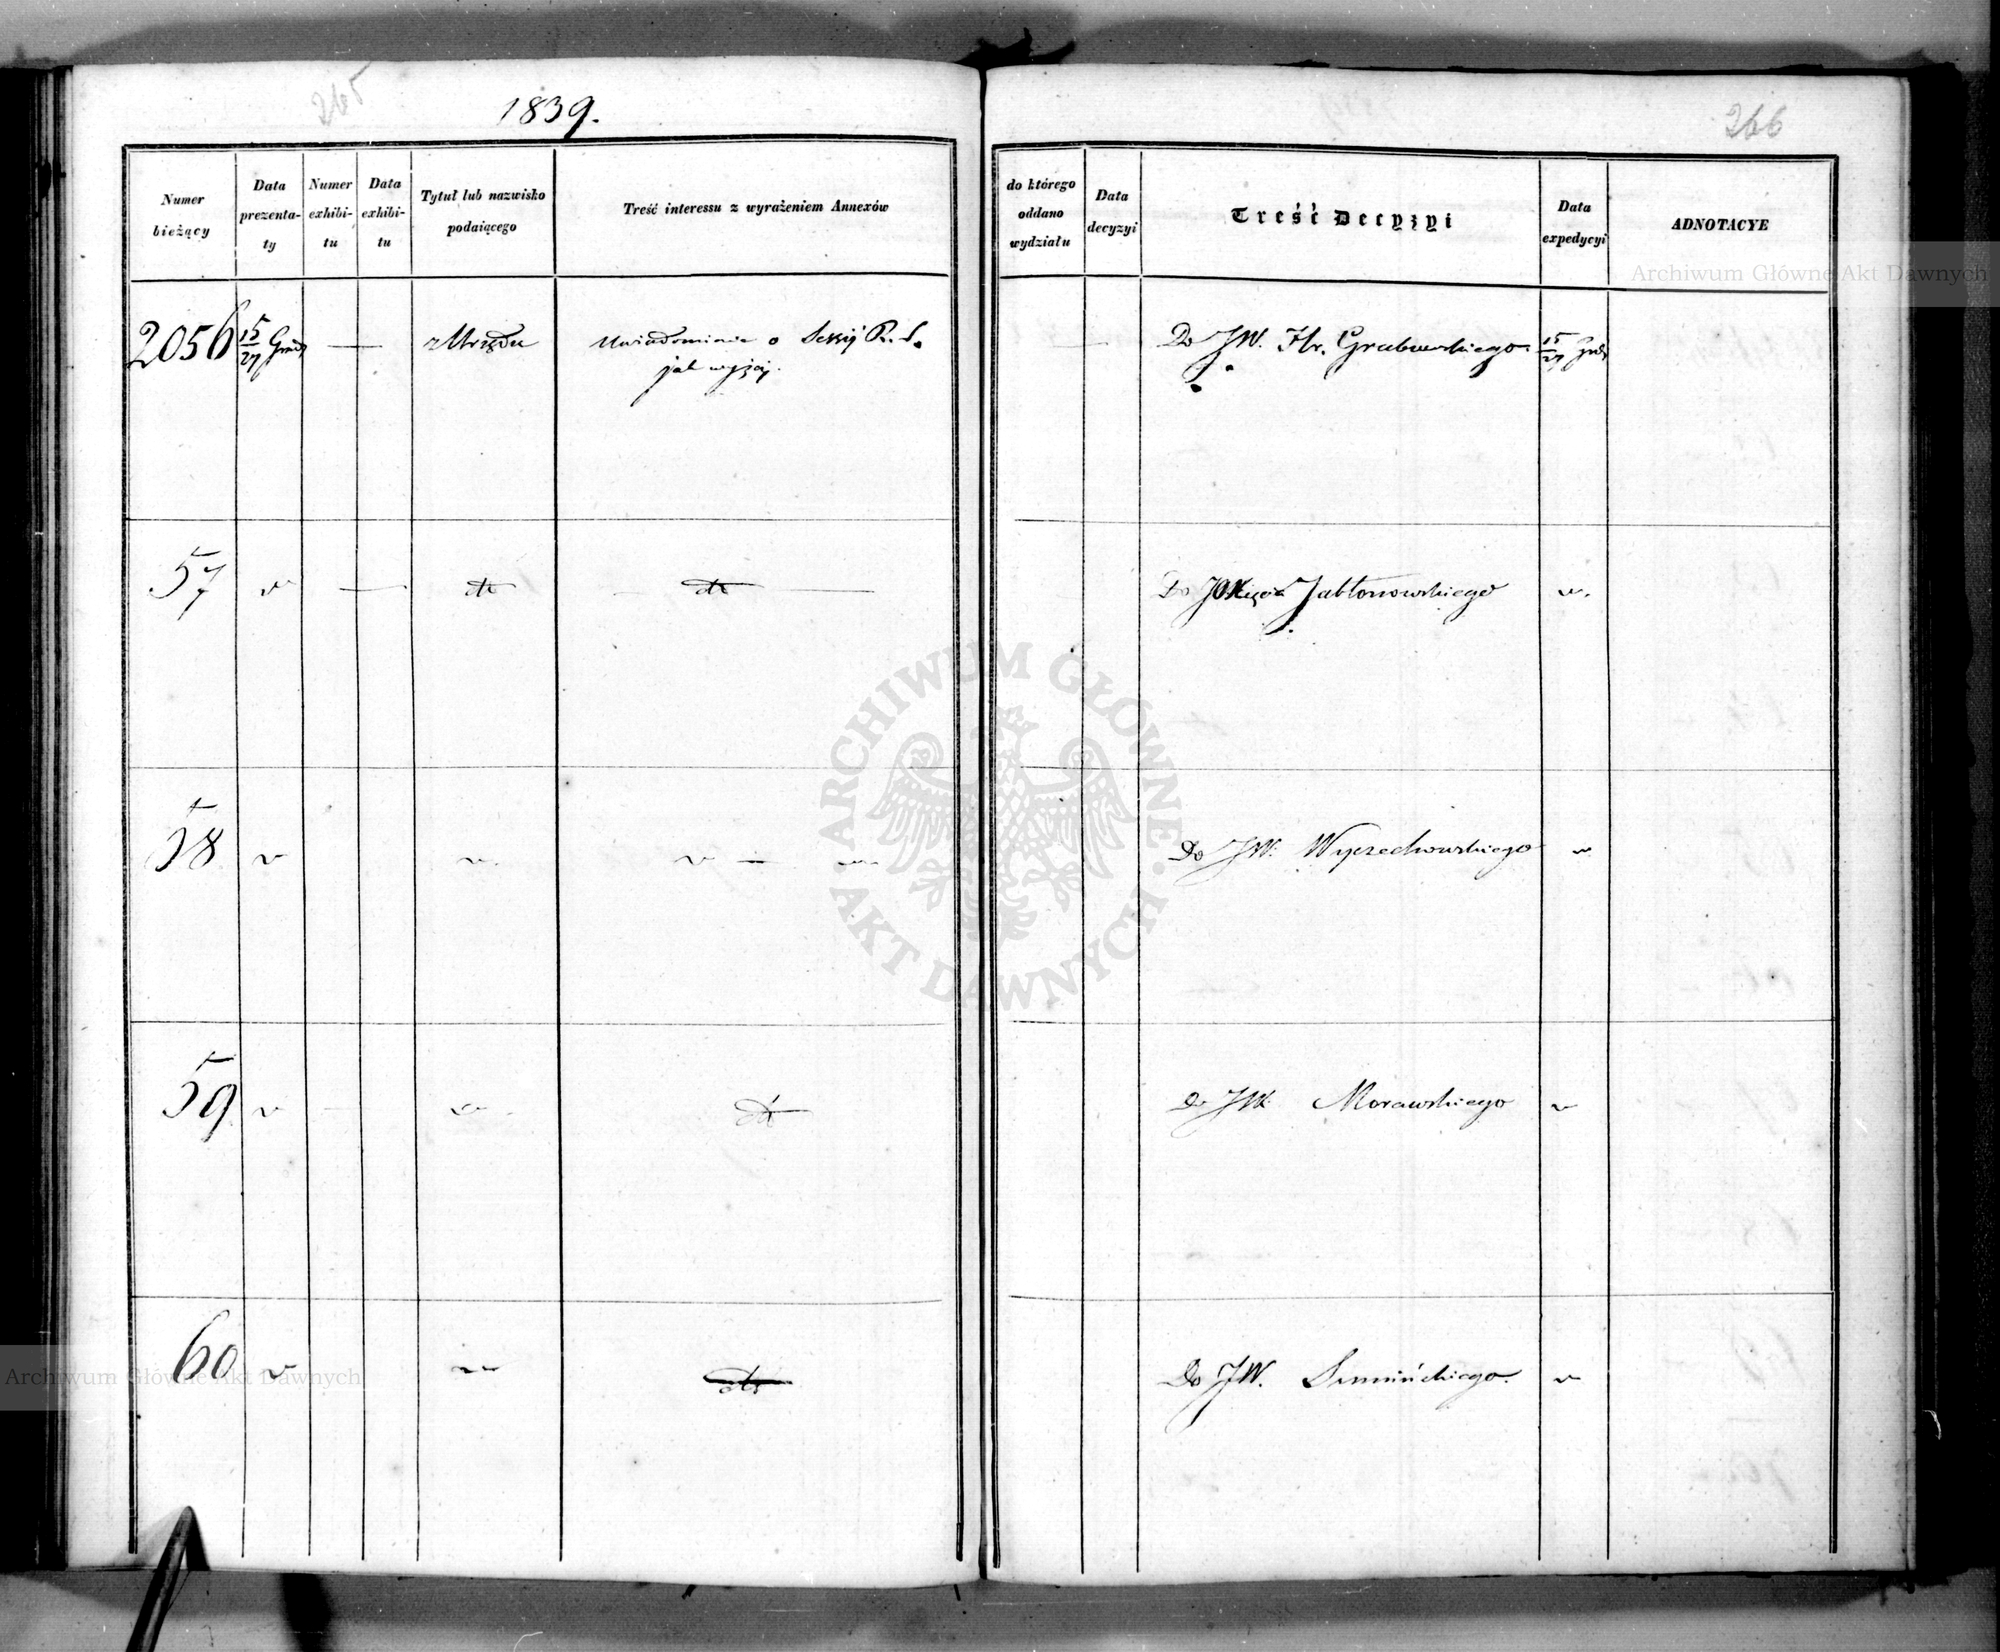 265
1839.
266
Numer bieżący
Data prezenta-ty
Numer exhibi-tu
Data exhibi-tu
Tytuł lub nazwisko podaiącego
Treść interessu z wyrażeniem Annexów
do którego oddano wydziału
Data decyzyi
Treść Decyzyi
Data expedycyi
ADNOTACYE
2056 15/27 Grud — z Urzędu Uwiadomienie o Sessyi R. S. Do JW. Hr. Grabowskiego. 15/27 Grud
jak wyżej.
57 v — dt dt — Do JO Xięcia Jabłonowskiego v.
58 v v. v — v Do JW. Wyczechowskiego v
59 v — v dt Do JW. Morawskiego v
60 v v dto Do JW. Sumińskiego. v
Archiwum Główne Akt Dawnych
Archiwum Główne Akt Dawnych
ARCHIWUM GŁÓWNE · AKT DAWNYCH ·